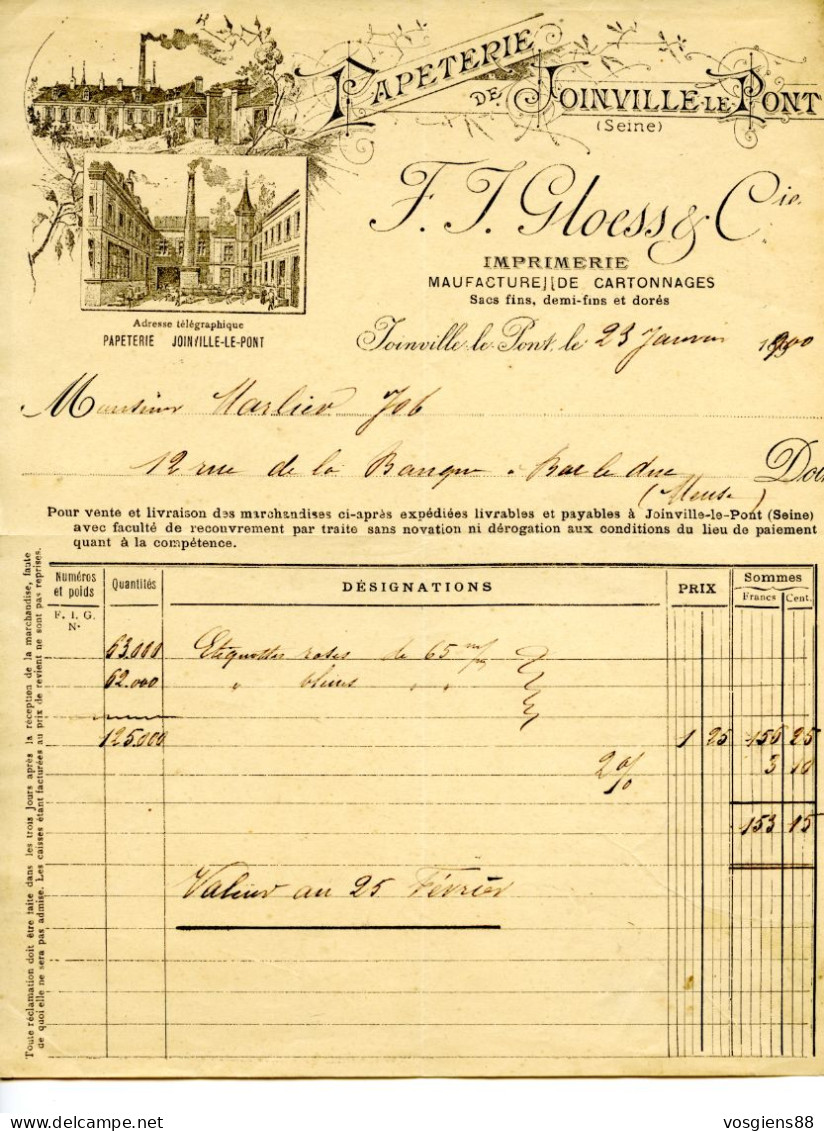 PAPETERIE
DE JOINVILLE-LE-PONT
(Seine)
F. J. Gloess & Cie.
IMPRIMERIE
MAUFACTURE DE CARTONNAGES
Sacs fins, demi-fins et dorés
Adresse télégraphique
PAPETERIE JOINVILLE-LE-PONT
Joinville-le-Pont, le 23 Janvier 1900
Monsieur Marlier Job
12 rue de la Banque à Bar le duc Doit
(Meuse)
Pour vente et livraison des marchandises ci-après expédiées livrables et payables à Joinville-le-Pont (Seine)
avec faculté de recouvrement par traite sans novation ni dérogation aux conditions du lieu de paiement
quant à la compétence.
Toute réclamation doit être faite dans les trois jours après la réception de la marchandise, faute
de quoi elle ne sera pas admise. Les caisses étant facturées au prix de revient ne sont pas reprises.
Numéros et poids Quantités DÉSIGNATIONS PRIX Sommes
Francs Cent.
F. I. G.
N°
63.000 Etiquettes roses de 65 m/m
62.000 " bleues " "
125.000 1 25 155 25
2 % 3 10
153 15
Valeur au 25 Février
vosgiens88